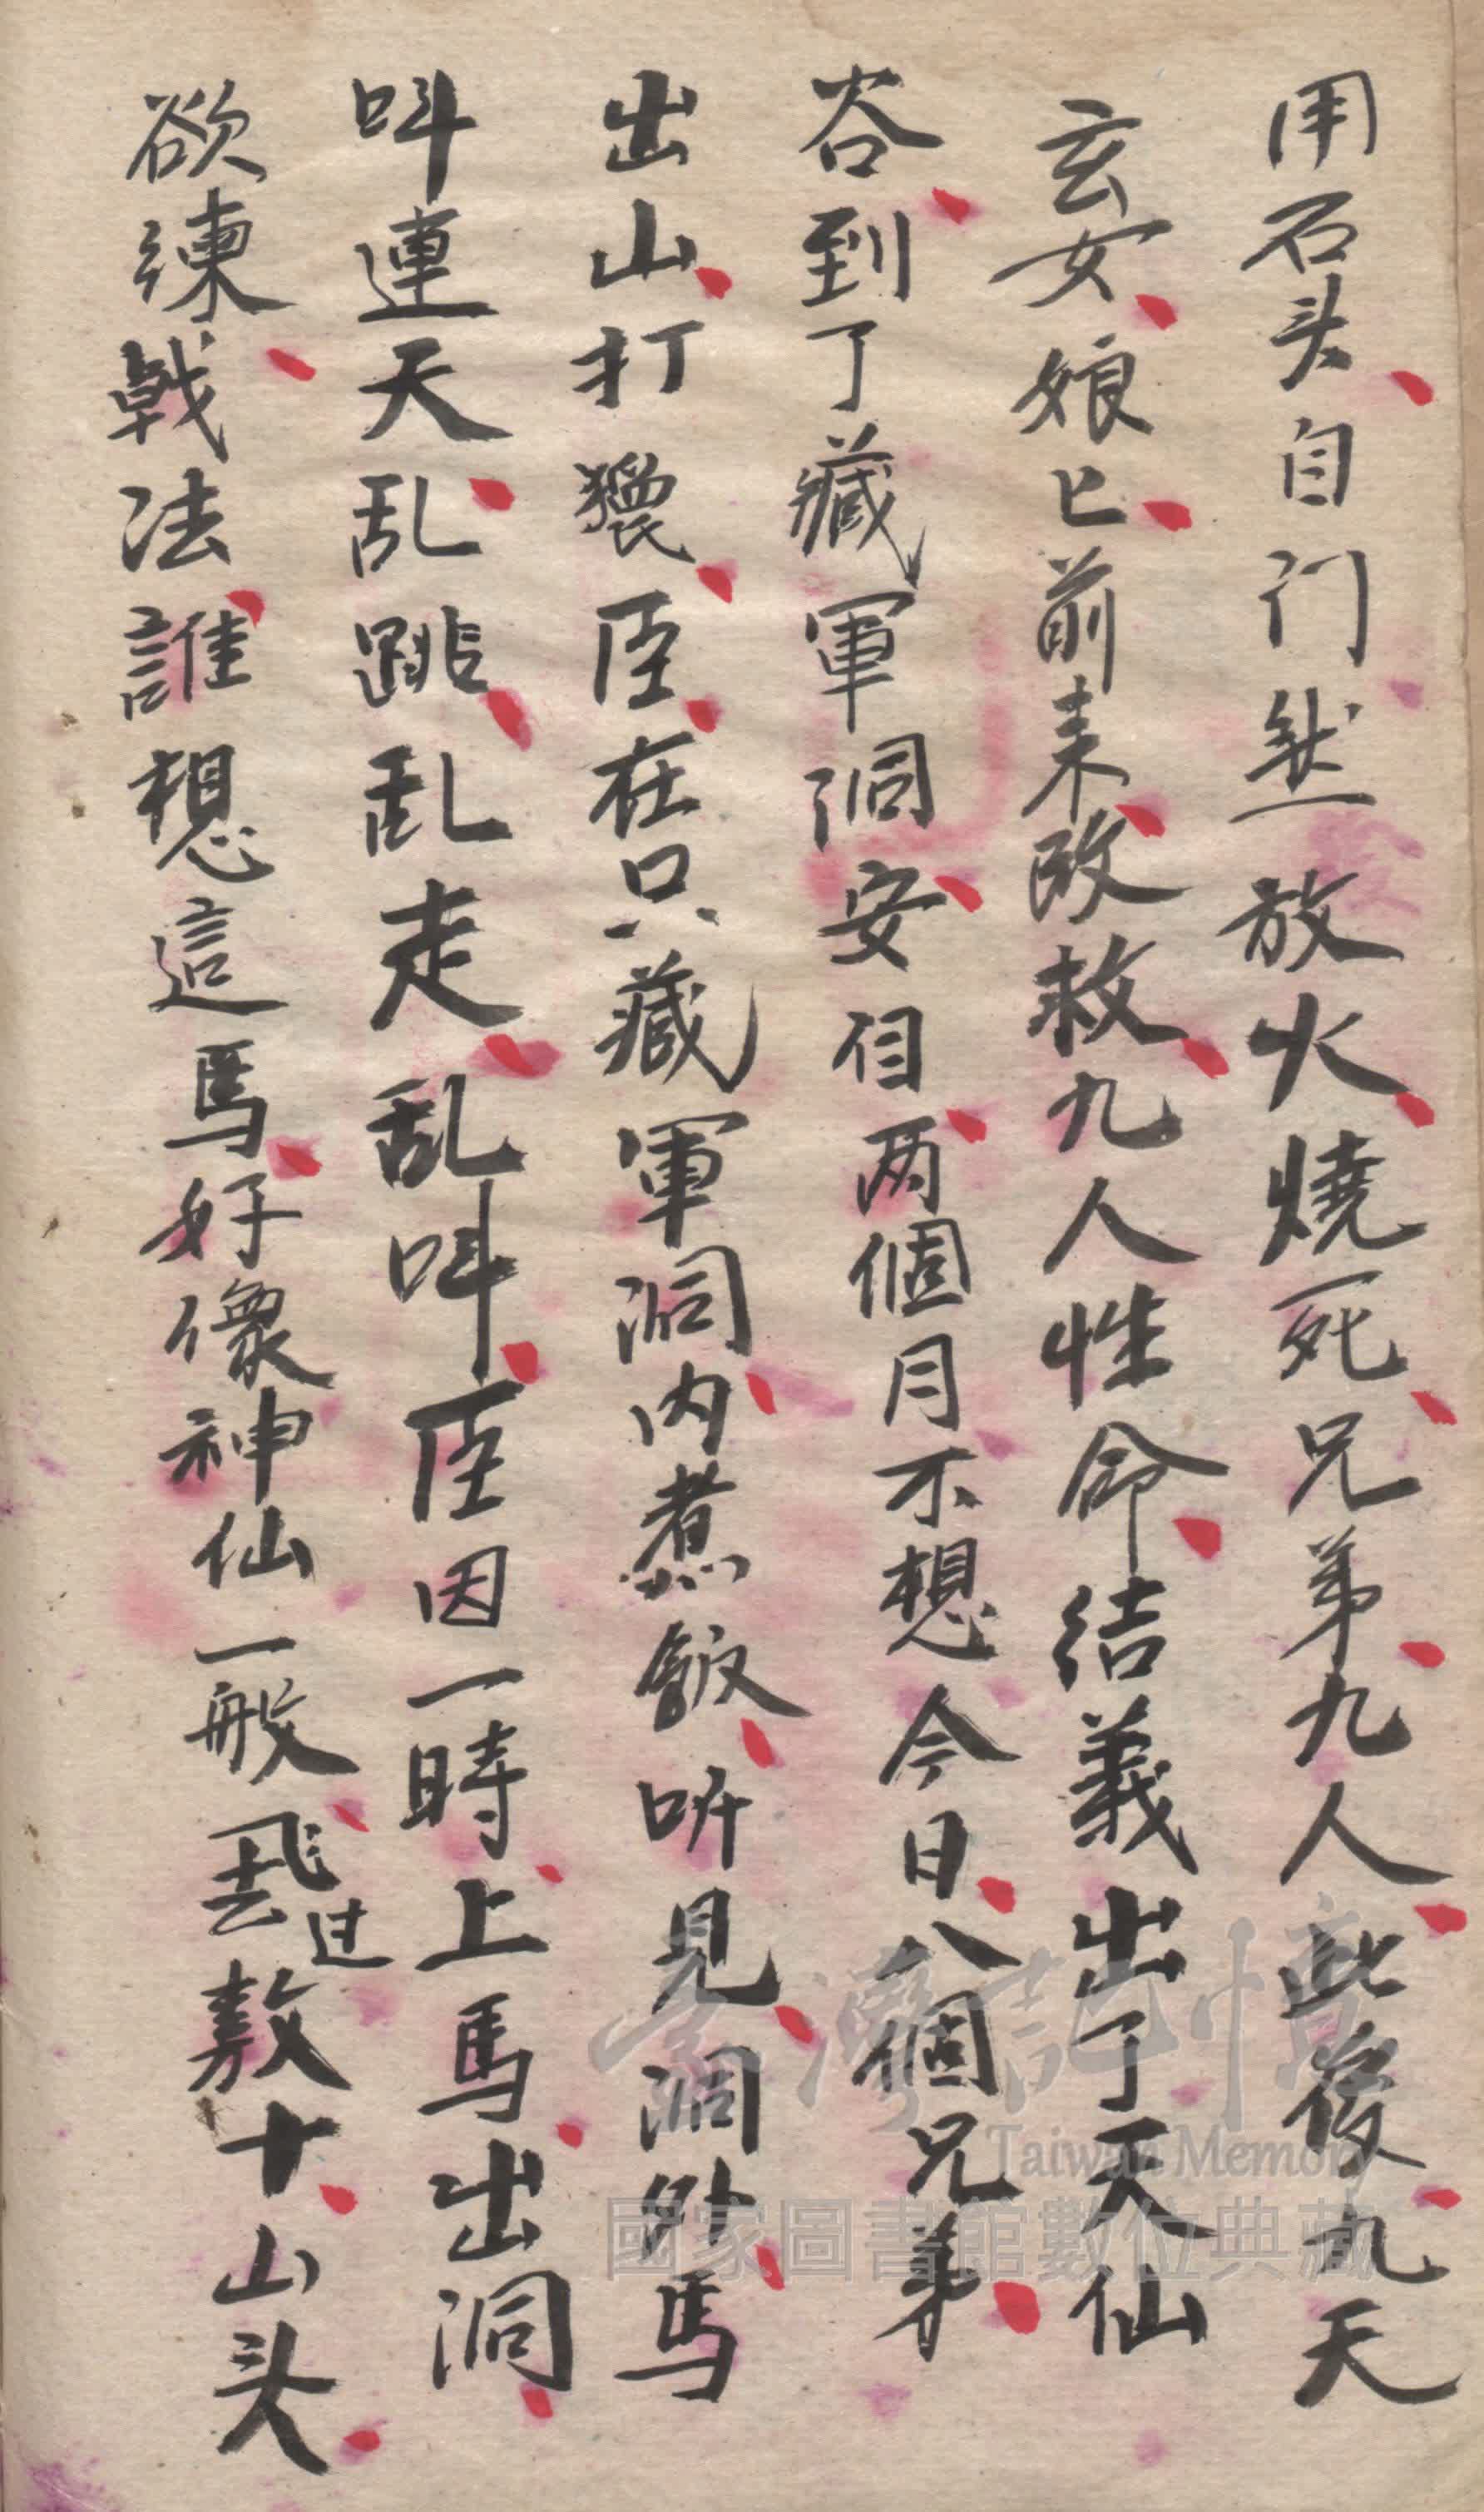 用石头自门然放火燒死兄弟九人此後九天
玄女娘匕前来改救九人性命結義出了天仙
谷到了藏軍洞安身两個月不想今日八個兄弟
出山打猥臣在只藏軍洞内煮飯听見洞外馬
叫連天乱跳乱走乱叫臣因一時上馬出洞
欲練戟法誰想這馬好像神仙一般飛过数十山头
臺灣記憶
Taiwan Memory
國家圖書館數位典藏